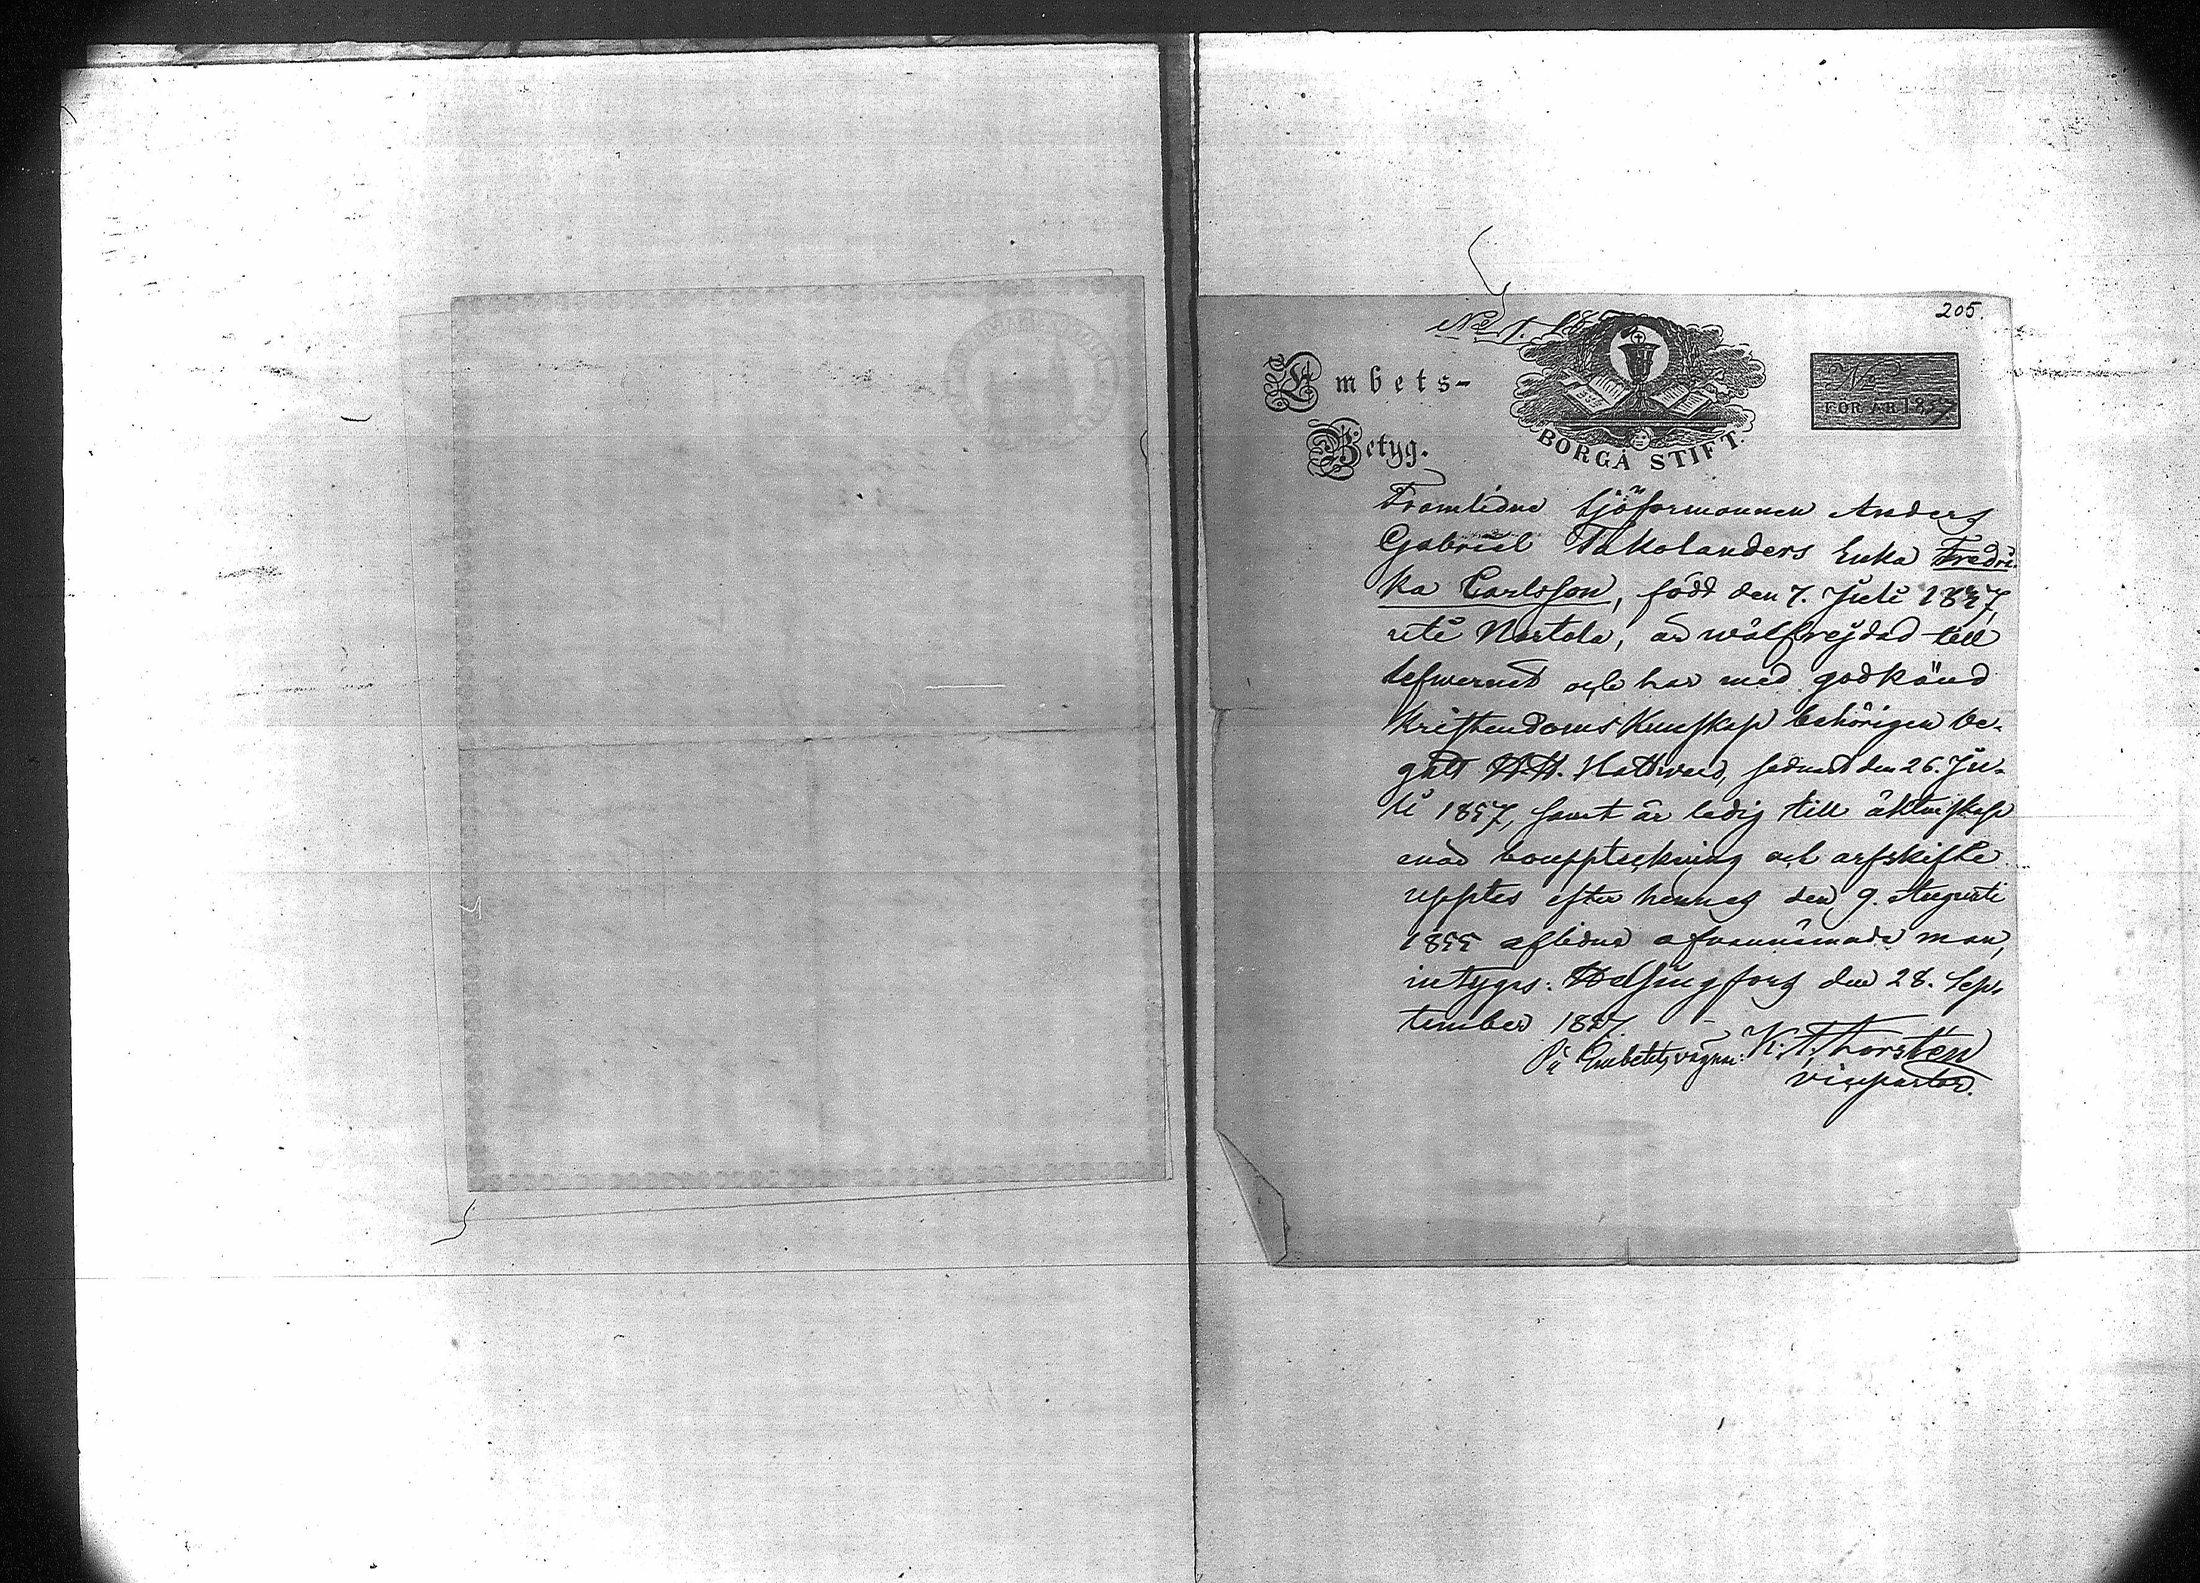 205.
No 1.
Embets-
Betyg.
BORGÅ STIFT.
FÖR ÅR 1857
Framlidne Sjöformannen Anders
Gabriel Takolanders Enka Fredri-
ka Carlsson, född den 7. Juli
uti är wälfrejdad till
lefwernet och har med godkänd
Kristendoms Kunskap behörigen be-
gått H.H. Nattward, sednast den 26. Ju-
li 1857, samt är ledig till äktenskap
enär bouppteckning och arfskifte
upptes efter hennes den 9. Augusti
1855 aflidne ofvannämnde man,
intygas: Helsingfors den 28. Sep-
tember 1857.
På Embetets vägnar: K. A. Thorsten
vicepastor.